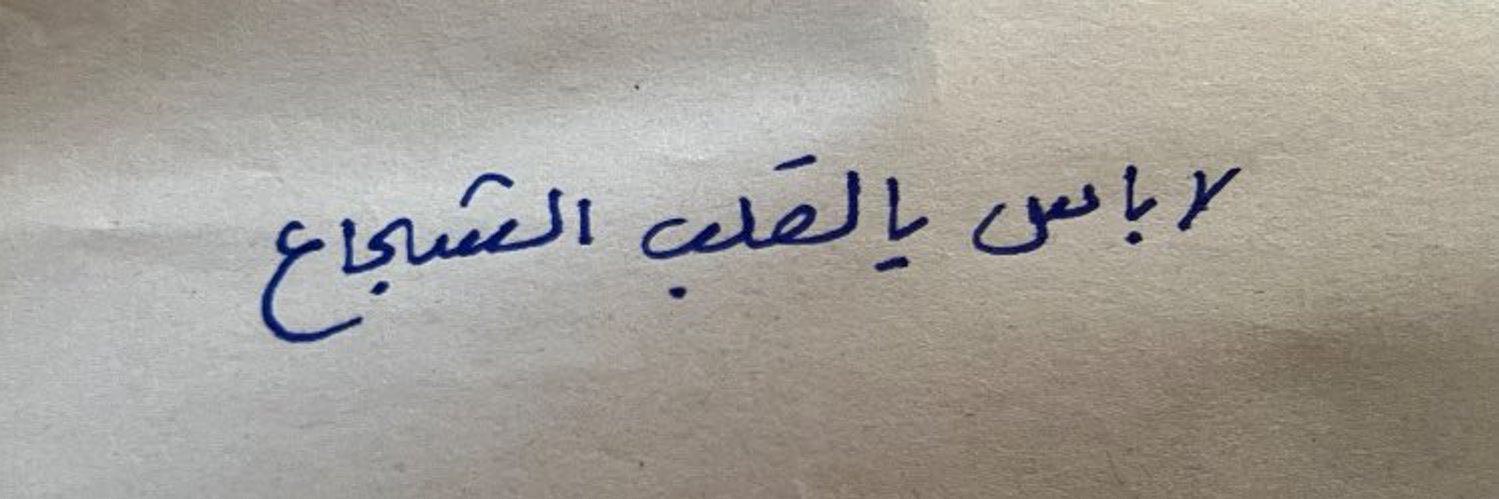 لا باس يالقلب الشجاع